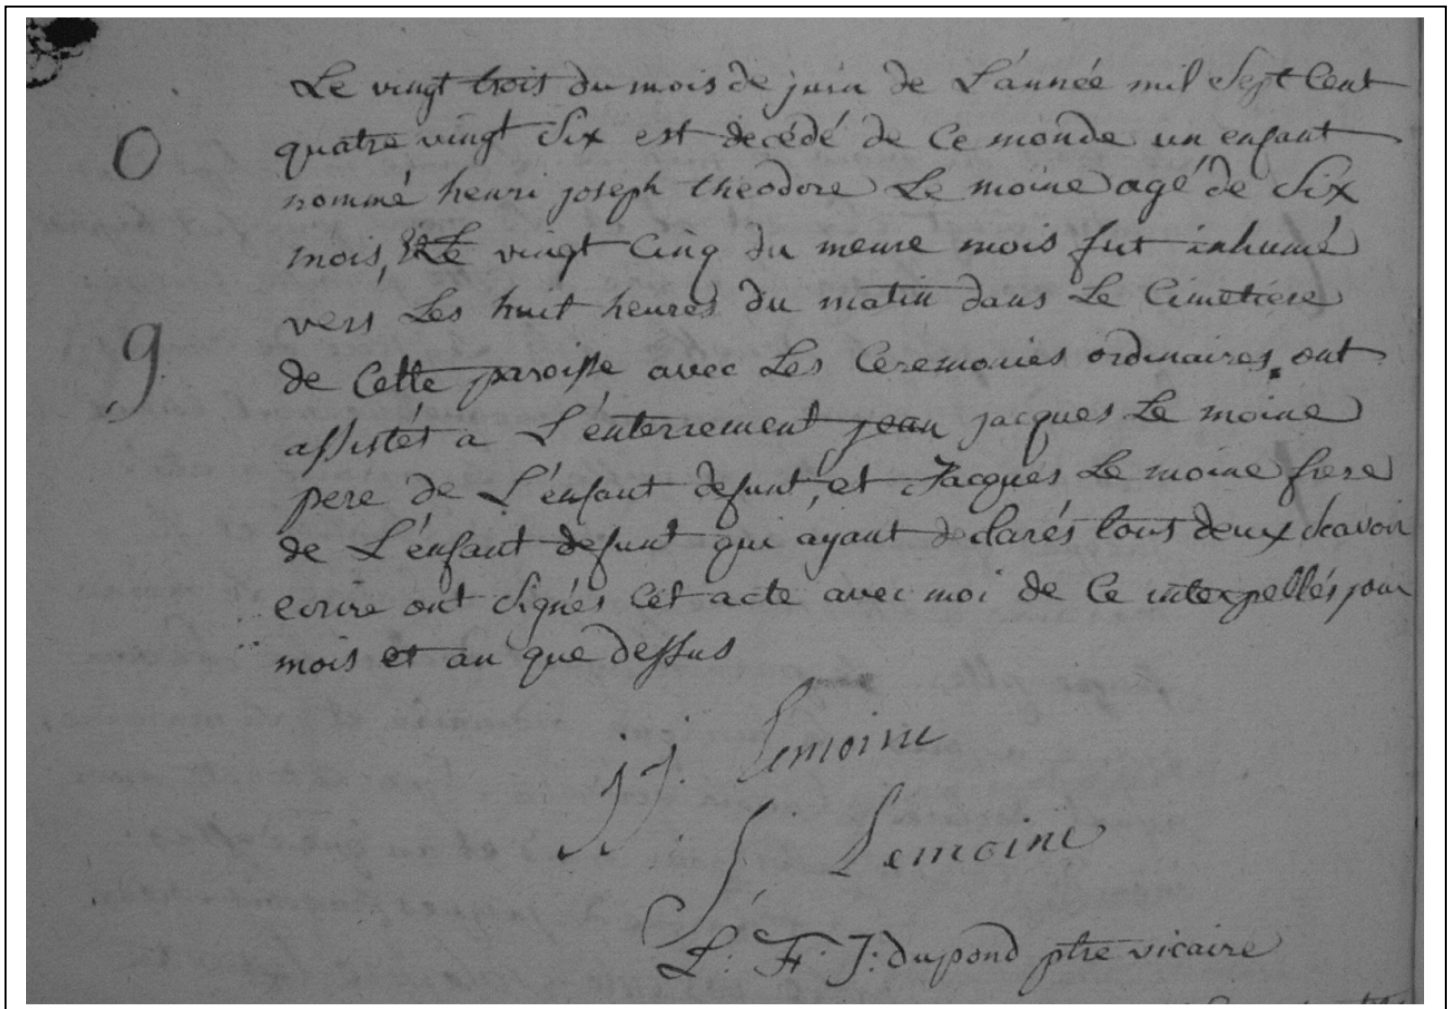 Le vingt trois du mois de juin de L'année mil Sept Cent
0
quatre vingt Six est decédé de Ce monde un enfant
nommé henri joseph theodore Le moine agé de Six
mois, Le vingt Cinq du meme mois fut inhumé
vers Les huit heures du matin dans Le Cimetiere
9
de Cette paroisse avec Les Ceremonies ordinaires. ont
assistés a L'enterrement jean jacques Le moine
pere de L'enfant defunt, et Jacques Le moine frere
de L'enfant defunt qui áyant declarés tous deux scavoir
ecrire ont signés Cet acte avec moi de Ce interpellés jour
mois et an que dessus
jj. Lemoine
j. Lemoine
L. F. J. dupond ptre vicaire